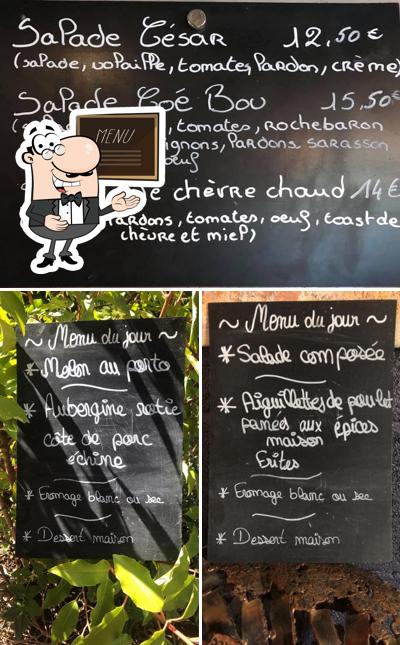 Salade César 12,50€
(salade, volaille, tomates, lardon, crème)
Salade Goé Bou 15,50€
, tomates, rochebaron
lardons, sarasson
oeuf
MENU
chèvre chaud 14€
lardons, tomates, oeuf, toast de
chèvre et miel)
~ Menu du jour ~
* Melon au porto
* Aubergine rotie
côte de porc
échine
* Fromage blanc ou sec
* Dessert maison
~ Menu du jour ~
* Salade composée
* Aiguillettes de poulet
panées aux épices
maison
Frites
* Fromage blanc ou sec
* Dessert maison